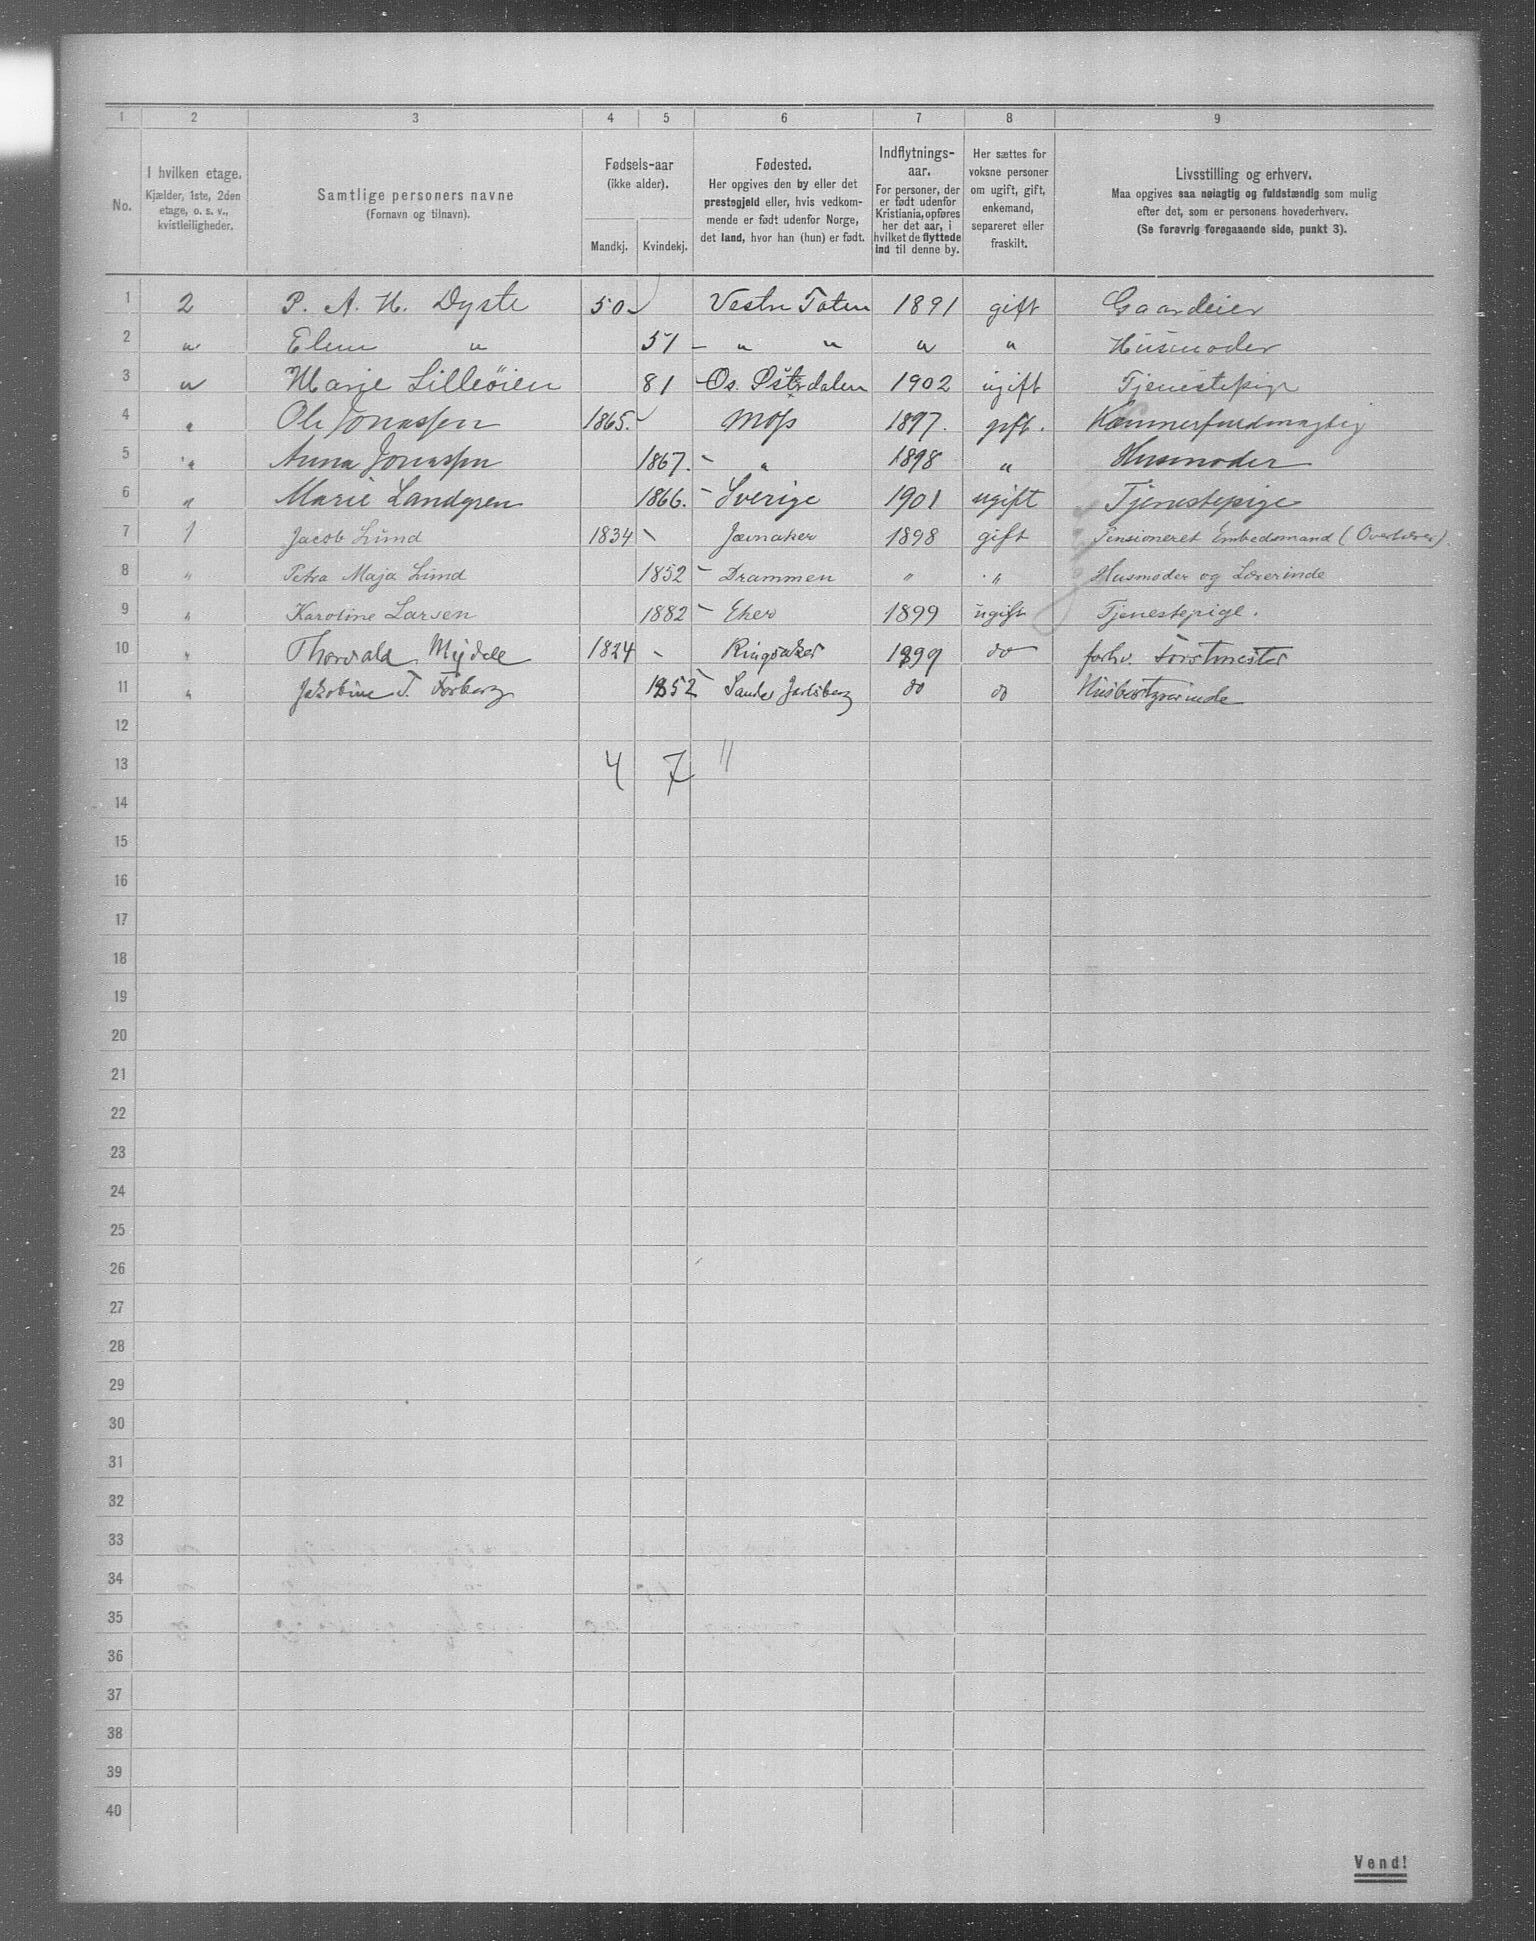 1 2 3 4 5 6 7 8 9
No.
I hvilken etage.
Kjælder, 1ste, 2den
etage, o. s. v.,
kvistleiligheder.
Samtlige personers navne
(Fornavn og tilnavn).
Fødsels-aar
(ikke alder).
Mandkj. Kvindekj.
Fødested.
Her opgives den by eller det
prestegjeld eller, hvis vedkom-
mende er født udenfor Norge,
det land, hvor han (hun) er født.
Indflytnings-
aar.
For personer, der
er født udenfor
Kristiania, opføres
her det aar, i
hvilket de flyttede
ind til denne by.
Her sættes for
voksne personer
om ugift, gift,
enkemand,
separeret eller
fraskilt.
Livsstilling og erhverv.
Maa opgives saa nøiagtig og fuldstændig som mulig
efter det, som er personens hovederhverv.
(Se forøvrig foregaaende side, punkt 3).
1 2 P. A. H. Dyste 50 Vestre Toten 1891 gift Gaardeier
2 " Eline " 51 – " " " " Husmoder
3 " Marie Lilleøien 81 – Os. Østerdalen 1902 ugift Tjenestepige
4 " Ole Jonassen 1865. Moss 1897. gift. Kæmnerfuldmægtig
5 " Anna Jonassen 1867. – " 1898 " Husmoder
6 " Marie Landgren 1866. – Sverige 1901 ugift Tjenestepige
7 1 Jacob Lund 1834 Jævnaker 1898 gift Pensioneret Embedsmand (Overlærer).
8 " Petra Maja Lund 1852 – Drammen " " Husmoder og Lærerinde
9 " Karoline Larsen 1882 – Eker 1899 ugift Tjenestepige.
10 " Thorvald 1824 – Ringsaker 1899 do forhv. Forstmester
11 " Jakobine T. Forberg 1852 – Jarlsberg do do Husbestyrerinde
12
13 4 7 11
14
15
16
17
18
19
20
21
22
23
24
25
26
27
28
29
30
31
32
33
34
35
36
37
38
39
40
Vend!